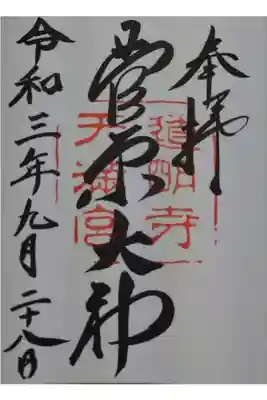 奉拝
道明寺
天満宮
菅原大神
令和三年九月二十八日